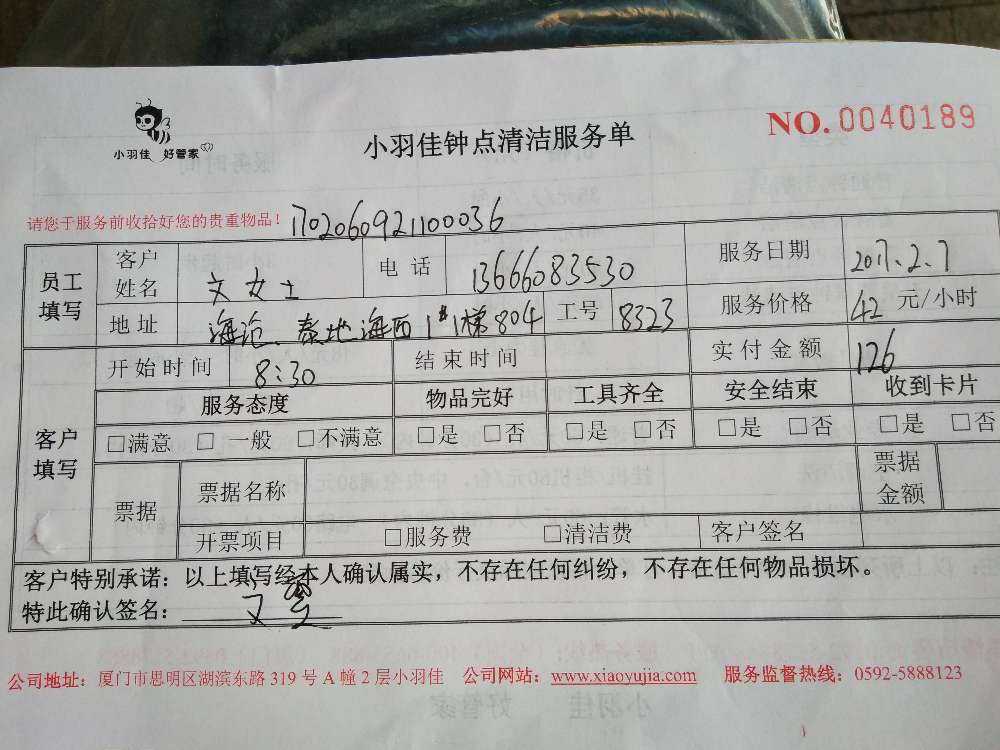 小羽佳 好管家
小羽佳钟点清洁服务单
NO. 0040189
请您于服务前收拾好您的贵重物品! 1702060921100036
员工填写 客户姓名 文女士 电话 13666083530 服务日期 2017.2.7
地址 海沧、泰地海西1#1梯804 工号 8323 服务价格 42 元/小时
客户填写 开始时间 8:30 结束时间 实付金额 126
服务态度 物品完好 工具齐全 安全结束 收到卡片
□满意 □一般 □不满意 □是 □否 □是 □否 □是 □否 □是 □否
票据 票据名称 票据金额
开票项目 □服务费 □清洁费 客户签名
客户特别承诺：以上填写经本人确认属实，不存在任何纠纷，不存在任何物品损坏。
特此确认签名： 文
公司地址：厦门市思明区湖滨东路 319 号 A 幢 2 层小羽佳 公司网站：www.xiaoyujia.com 服务监督热线：0592-5888123